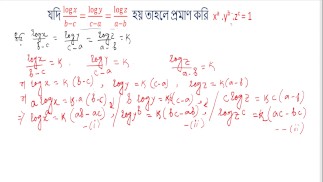 যদি logx/b-c = logy/c-a = logz/a-b হয় তাহলে প্রমাণ করি xᵃ.yᵇ.zᶜ=1
logx/b-c = logy/c-a = logz/a-b = k
logx/b-c = k. logy/c-a = k logz/a-b = k
⇒ logx = k(b-c), logy = k(c-a), logz = k(a-b)
⇒ a logx = k.a(b-c) / b logy = kb(c-a), / c logz = kc(a-b)
⇒ logxᵃ = k(ab-ac) / logyᵇ = k(bc-ab) / logzᶜ = k(ac-bc)
-(i) -(ii) --(ii)